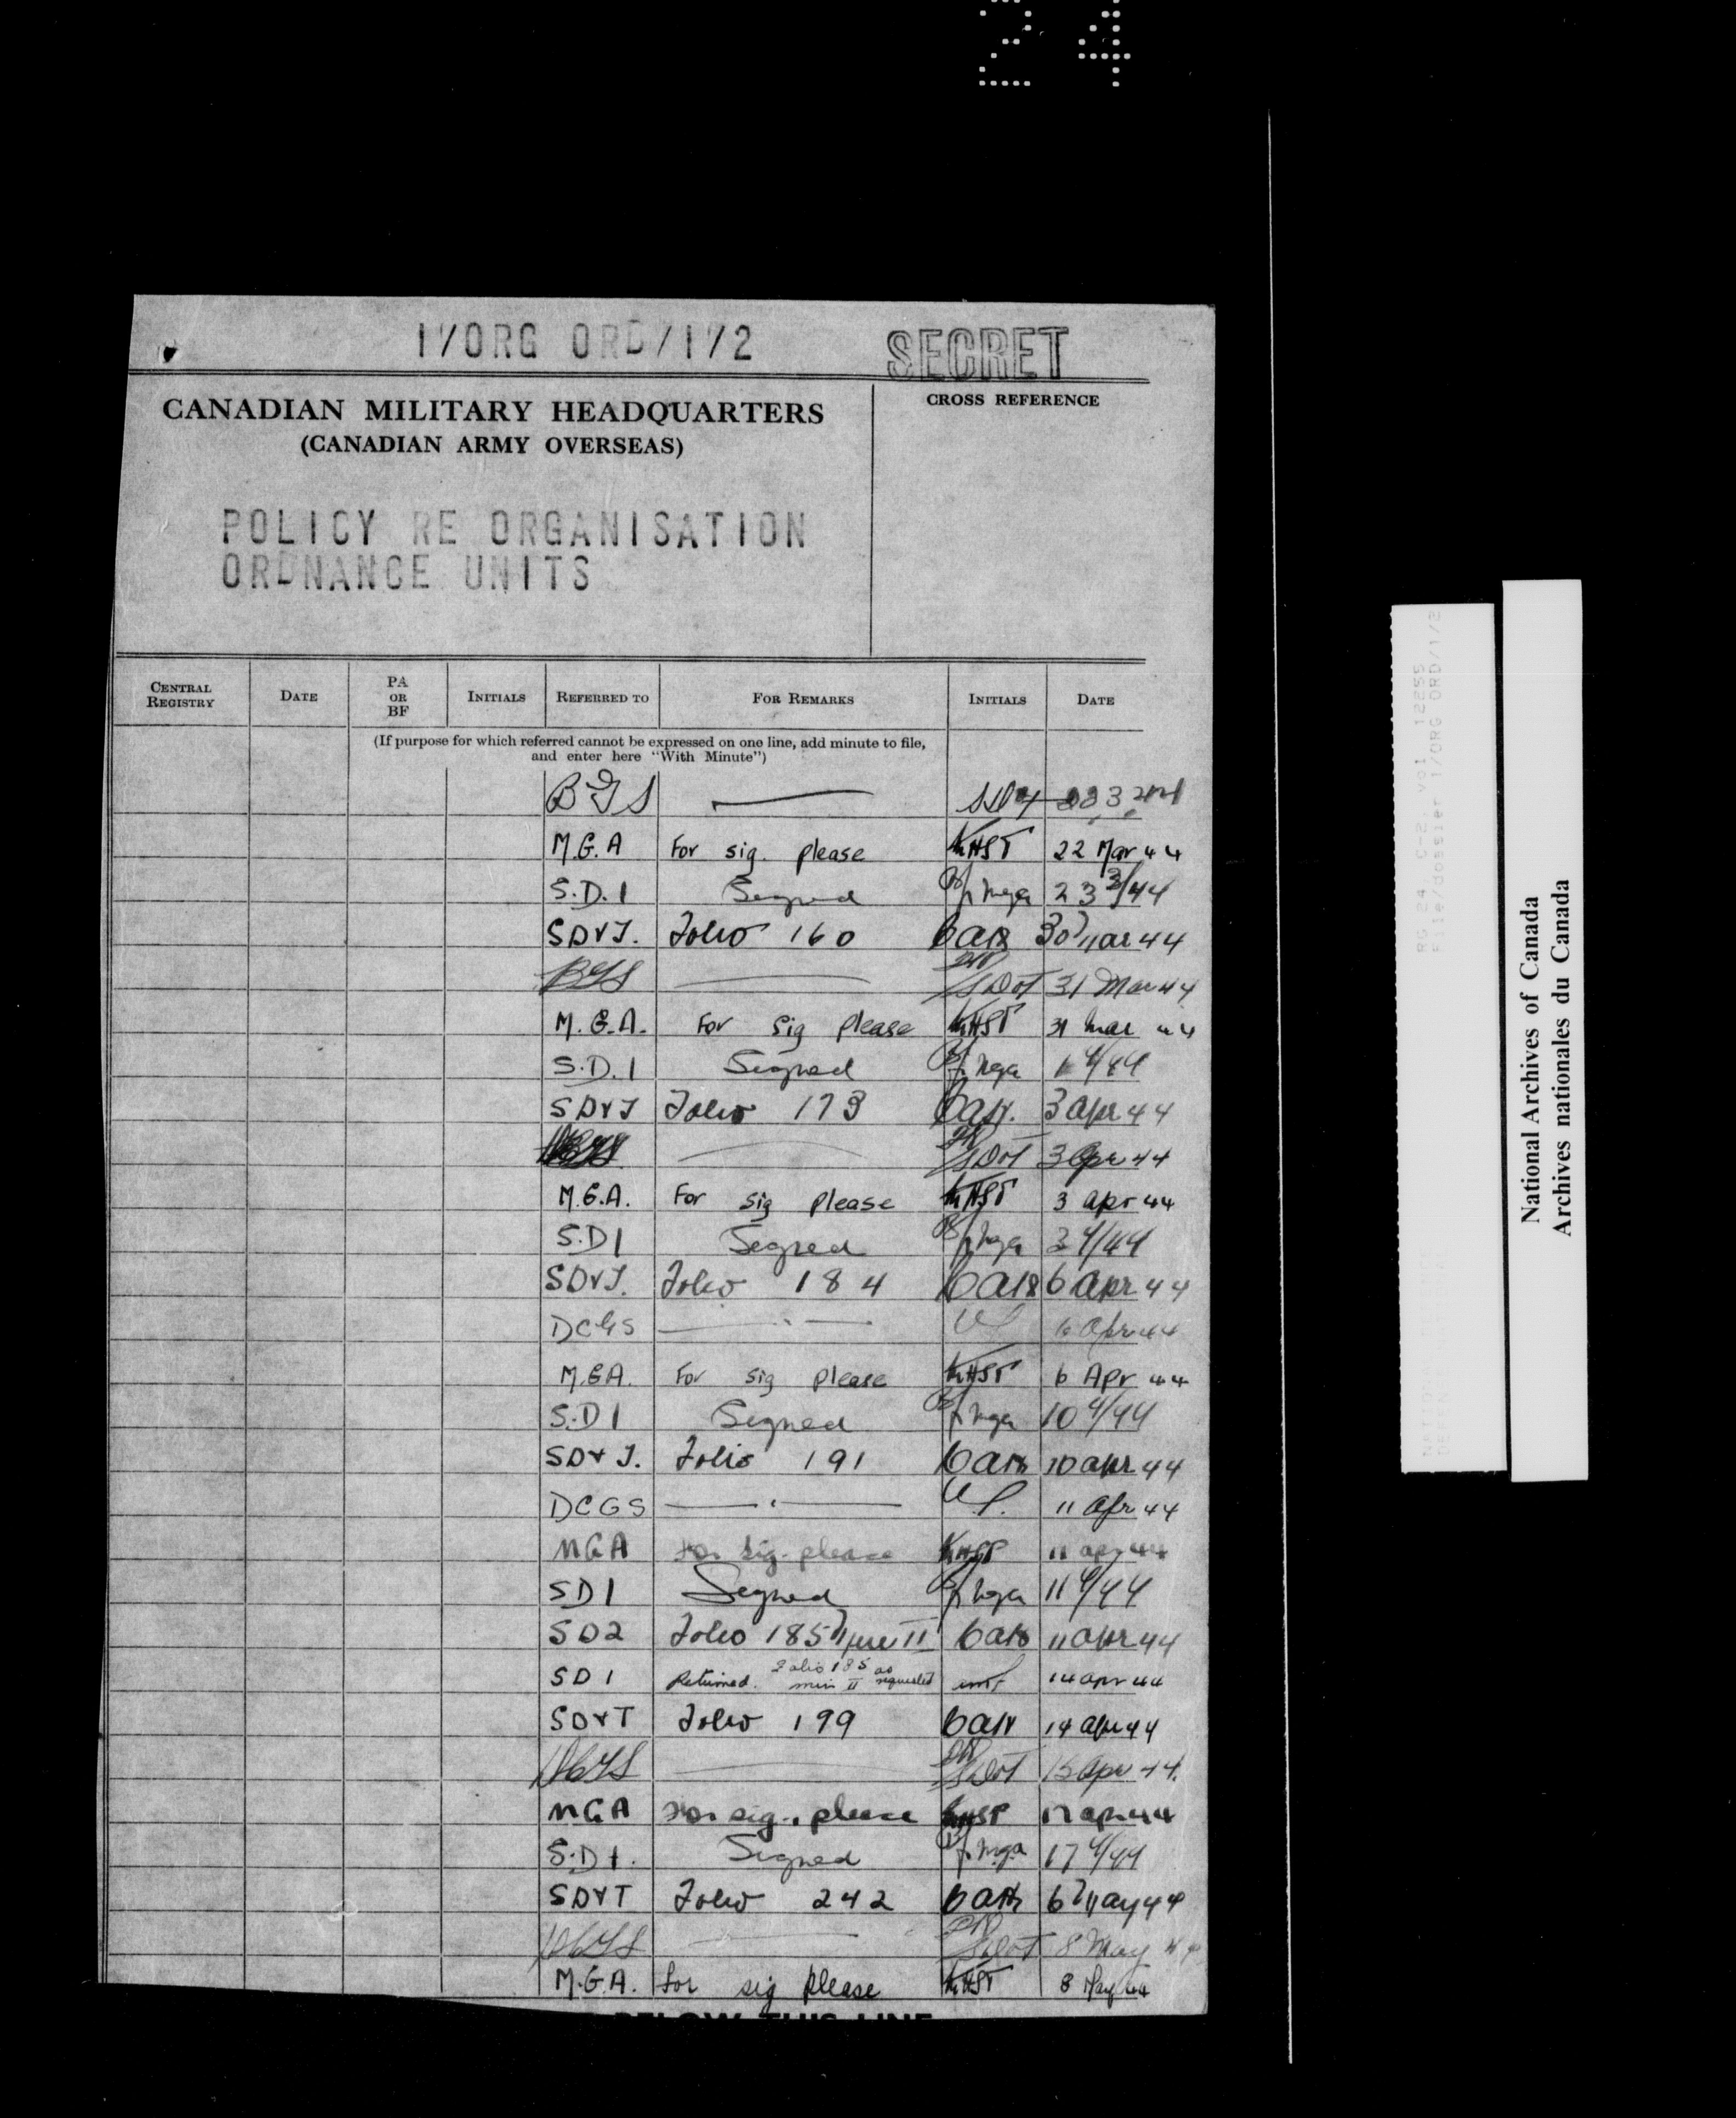 24
1/ORG ORD/1/2 SECRET
CANADIAN MILITARY HEADQUARTERS
(CANADIAN ARMY OVERSEAS)
CROSS REFERENCE
POLICY RE ORGANISATION
ORDNANCE UNITS
CENTRAL REGISTRY DATE PA OR BF INITIALS REFERRED TO FOR REMARKS INITIALS DATE
(If purpose for which referred cannot be expressed on one line, add minute to file,
and enter here "With Minute")
BGS
M.G.A For sig. please KHST 22 Mar 44
S.D.1 Signed mga 23 3/44
SD&T. Folio 160 30 Mar 44
BGS SDOT 31 Mar 44
M.G.A. For sig please KHST 31 Mar 44
S.D.1 Signed mga 1 4/44
SD&T Folio 173 3 Apr 44
SDOT 3 Apr 44
M.G.A. For sig please KHST 3 Apr 44
S.D1 Signed mga 3 4/44
SD&T. Folio 184 6 Apr 44
DCGS 6 Apr 44
M.GA. For sig please KHST 6 Apr 44
S.D1 Signed mga 10 4/44
SD&T. Folio 191 10 Apr 44
DCGS 11 Apr 44
MGA For sig. please KHST 11 Apr 44
SD1 Signed mga 11 4/44
SD2 Folio 185 Min II 11 Apr 44
SD1 Returned. Folio 185 min II as requested 14 Apr 44
SD&T Folio 199 14 Apr 44
DCGS SDOT 15 Apr 44.
MGA For sig., please KHST 17 Apr 44
S.D1. Signed mga 17 4/44
SD&T Folio 242 6 May 44
DCGS SDOT 8 May 44
M.G.A. for sig please KHST 8 May 44
BELOW THIS LINE
RG 24, C-2, vol. 12255
File/dossier 1/ORG ORD/1/2
National Archives of Canada
Archives nationales du Canada